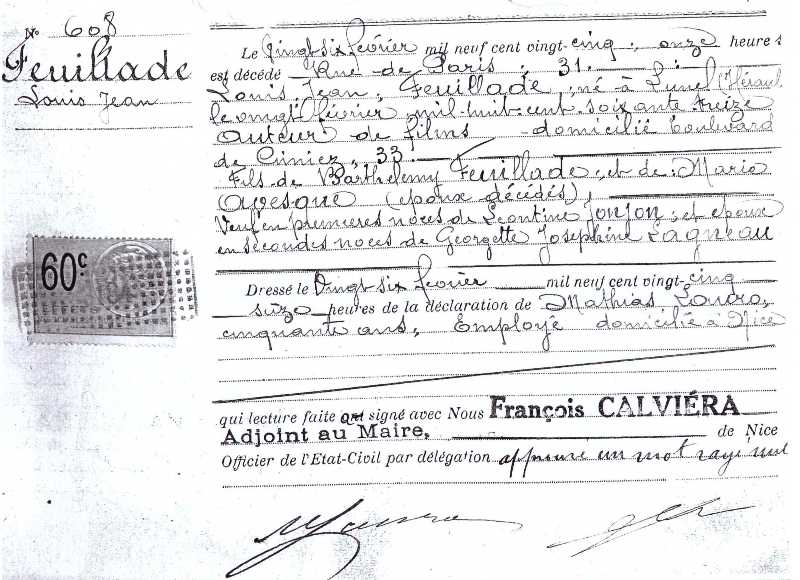 N° 608
Feuillade
Louis Jean
60c
Le Vingt six février mil neuf cent vingt-cinq, onze heures
est décédé Rue de Paris, 31.
Louis Jean, Feuillade, né à Lunel (Hérault
le vingt février mil huit cent soixante treize
auteur de films domicilié boulevard
de Cimiez, 33.
Fils de Barthelemy Feuillade, et de Marie
Avesque (époux décédés),
Veuf en premieres noces de Léontine Jonjon, et époux
en secondes noces de Georgette Josephine Lagneau
Dressé le Vingt six février mil neuf cent vingt-cinq
seize heures de la déclaration de Mathias
cinquante ans, Employé domicilié à Nice
qui lecture faite ont signé avec Nous François CALVIÉRA
Adjoint au Maire, de Nice
Officier de l'Etat-Civil par délégation approuvé un mot rayé nul